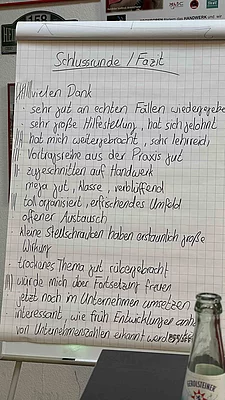 Schlussrunde / Fazit
vielen Dank
- sehr gut an echten Fällen wiedergegebe
- sehr große Hilfestellung, hat sich gelohnt
- hat mich weitergebracht, sehr lehrreich
- Vortragsreihe aus der Praxis gut
- zugeschnitten auf Handwerk
- mega gut, klasse, verblüffend
- toll organisiert, erfrischendes Umfeld
offener Austausch
- kleine Stellschrauben haben erstaunlich große
Wirkung
- trockenes Thema gut rübergebracht
- würde mich über Fortsetzung freuen
- jetzt noch im Unternehmen umsetzen
- interessant, wie früh Entwicklungen anha
von Unternehmenszahlen erkannt werden
GEROLSTEINER